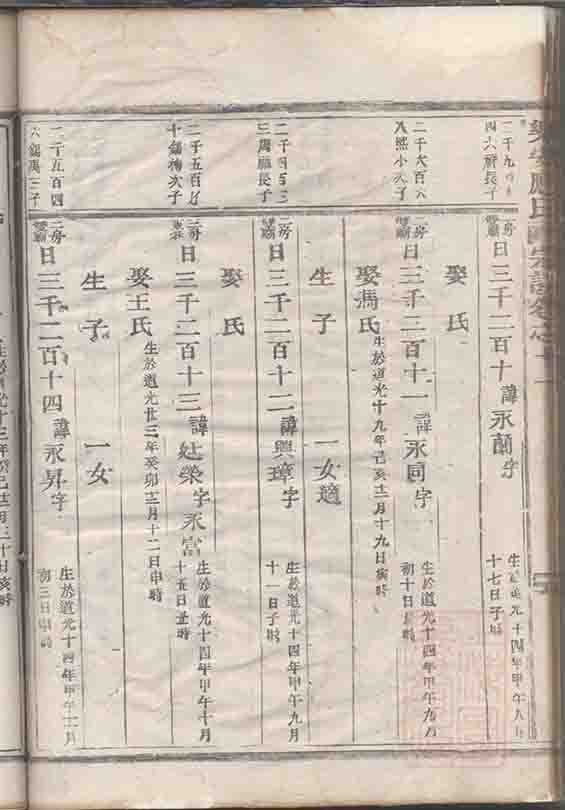 二千九
四六 長子
二房 日三千二百十 諱永蘭 字 生 道光十四年甲午九月
十七日子時
娶 氏
二千六百六
八熙小久子
二房 日三千二百十一 諱永同 字 生於道光十四年甲午九月
初十日 時
娶馮氏 生於道光十九年己亥十二月十九日亥時
生子 一女適
二千四百三
三 長子
二房 日三千二百十二 諱興璋 字 生於道光十四年甲午九月
十一日子時
娶 氏
二千五百
十 梅次子
三房 日三千二百十三 諱 榮 字永富 生於道光十四年甲午十月
十五日丑時
娶王氏 生於道光廿三年癸卯十二月十二日申時
生子 一女
二千五百四
六 禹三子
二房 日三千二百十四 諱永昇 字 生於道光十四年甲午十一月
初三日申時
生於道光十三年癸巳十二月三十日亥時